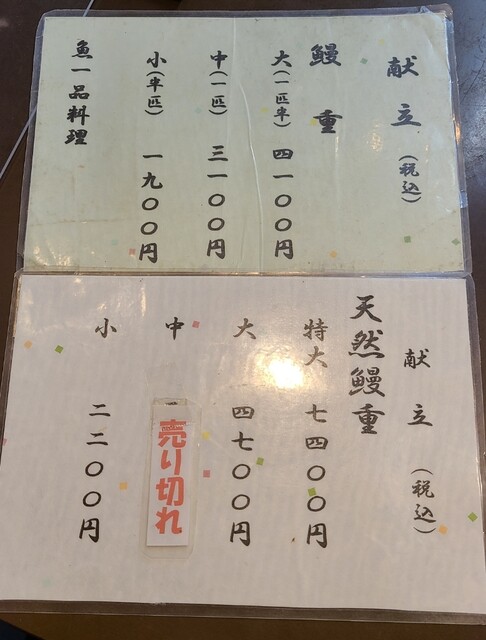 献立(税込)
鰻重
大(一匹半) 四一〇〇円
中(一匹) 三一〇〇円
小(半匹) 一九〇〇円
魚一品料理
献立(税込)
天然鰻重
特大 七四〇〇円
大 四七〇〇円
中 売り切れ
小 二二〇〇円